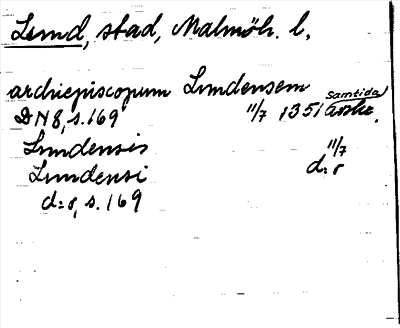 Lund, stad, Malmöh. l.
archiepiscopum Lundensem
DN 8, s. 169 11/7 1351 samtida avskr.
Lundensis 11/7
Lundensi d:o
d:o, s. 169